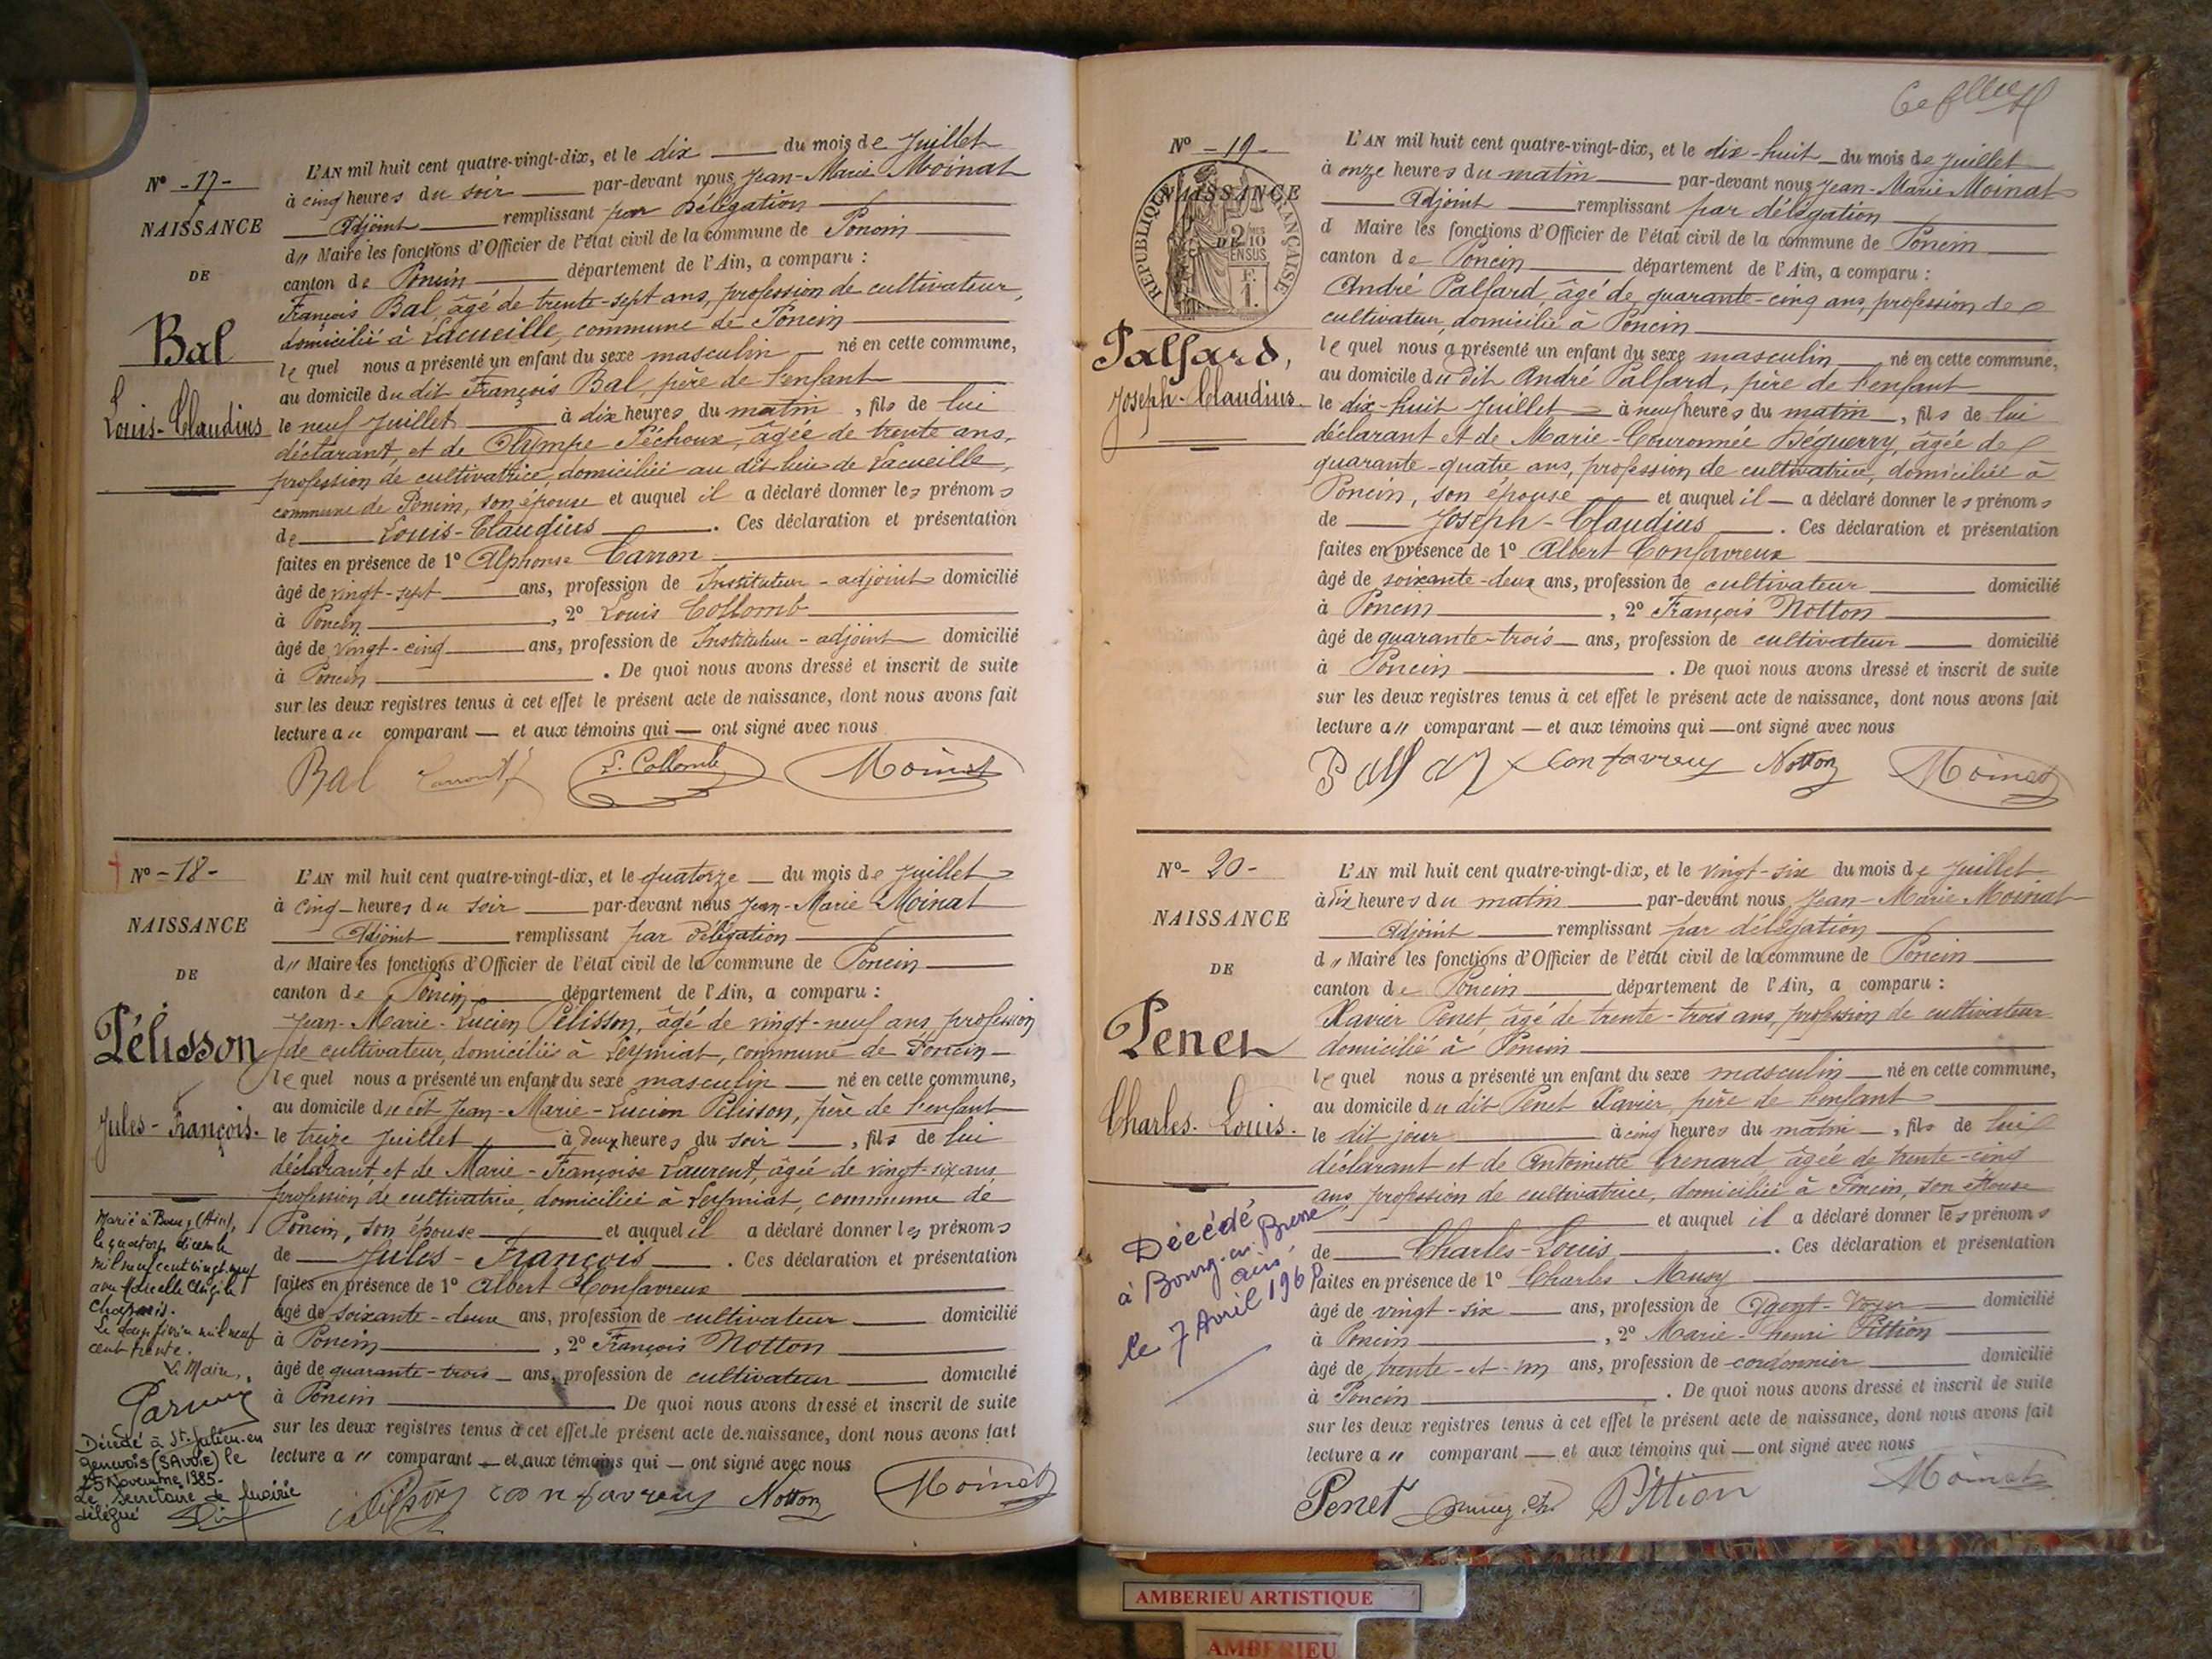 N° - 17 -
NAISSANCE
DE
Bal
Louis-Claudius
L'AN mil huit cent quatre-vingt-dix, et le dix du mois de Juillet
à cinq heures du soir par-devant nous Jean-Marie Moinat
Adjoint remplissant par Délégation
d" Maire les fonctions d'Officier de l'état civil de la commune de Poncin
canton de Poncin département de l'Ain, a comparu :
François Bal, âgé de trente-sept ans, profession de cultivateur,
domicilié à Lacueille, commune de Poncin
lequel nous a présenté un enfant du sexe masculin né en cette commune,
au domicile du dit François Bal, père de l'enfant
le neuf Juillet à dix heures du matin, fils de lui
déclarant, et de Olympe Péchoux, âgée de trente ans,
profession de cultivatrice, domiciliée au dit lieu de Lacueille,
commune de Poncin, son épouse et auquel il a déclaré donner les prénoms
de Louis-Claudius. Ces déclaration et présentation
faites en présence de 1° Alphonse Carron
âgé de vingt-sept ans, profession de Instituteur-adjoint domicilié
à Poncin, 2° Louis Collomb
âgé de vingt-cinq ans, profession de Instituteur-adjoint domicilié
à Poncin. De quoi nous avons dressé et inscrit de suite
sur les deux registres tenus à cet effet le présent acte de naissance, dont nous avons fait
lecture au comparant — et aux témoins qui — ont signé avec nous
Bal L. Collomb Moinat
N° - 18 -
NAISSANCE
DE
Pélisson
Jules-François.
Marié à Bourg (Ain),
le quatorze décembre
mil neuf cent vingt-neuf
avec
Le douze février mil neuf
cent trente.
Le Maire,
Décédé à St-Julien-en
Genevois (SAVOIE) le
25 Novembre 1985.
Le Secrétaire de Mairie
délégué
L'AN mil huit cent quatre-vingt-dix, et le quatorze du mois de Juillet
à cinq heures du soir par-devant nous Jean-Marie Moinat
Adjoint remplissant par Délégation
d" Maire les fonctions d'Officier de l'état civil de la commune de Poncin
canton de Poncin département de l'Ain, a comparu :
Jean-Marie-Lucien Pélisson, âgé de vingt-neuf ans, profession
de cultivateur, domicilié à Leymiat, commune de Poncin
lequel nous a présenté un enfant du sexe masculin né en cette commune,
au domicile du dit Jean-Marie-Lucien Pélisson, père de l'enfant
le treize Juillet à deux heures du soir, fils de lui
déclarant, et de Marie-Françoise Laurent, âgée de vingt-six ans
profession de cultivatrice, domiciliée à Leymiat, commune de
Poncin, son épouse et auquel il a déclaré donner les prénoms
de Jules-François. Ces déclaration et présentation
faites en présence de 1° Albert Confavreux
âgé de soixante-deux ans, profession de cultivateur domicilié
à Poncin, 2° François Notton
âgé de quarante-trois ans, profession de cultivateur domicilié
à Poncin De quoi nous avons dressé et inscrit de suite
sur les deux registres tenus à cet effet le présent acte de naissance, dont nous avons fait
lecture a " comparant — et aux témoins qui — ont signé avec nous
confavreux Notton Moinat
N° - 19 -
NAISSANCE
DE
REPUBLIQUE FRANÇAISE
2 10
EN SUS
Palfard,
Joseph-Claudius.
L'AN mil huit cent quatre-vingt-dix, et le dix-huit du mois de Juillet
à onze heures du matin par-devant nous Jean-Marie Moinat
Adjoint remplissant par délégation
d Maire les fonctions d'Officier de l'état civil de la commune de Poncin
canton de Poncin département de l'Ain, a comparu :
André Palfard, âgé de quarante-cinq ans, profession de
cultivateur, domicilié à Poncin
lequel nous a présenté un enfant du sexe masculin né en cette commune,
au domicile du dit André Palfard, père de l'enfant
le dix-huit Juillet à neuf heures du matin, fils de lui
déclarant et de Marie-Couronnée Déguerry, âgée de
quarante-quatre ans, profession de cultivatrice, domiciliée à
Poncin, son épouse et auquel il — a déclaré donner les prénoms
de Joseph-Claudius. Ces déclaration et présentation
faites en présence de 1° Albert Confavreux
âgé de soixante-deux ans, profession de cultivateur domicilié
à Poncin, 2° François Notton
âgé de quarante-trois ans, profession de cultivateur domicilié
à Poncin. De quoi nous avons dressé et inscrit de suite
sur les deux registres tenus à cet effet le présent acte de naissance, dont nous avons fait
lecture a" comparant — et aux témoins qui — ont signé avec nous
Confavreux Notton Moinat
N° - 20 -
NAISSANCE
DE
Penet
Charles-Louis.
Décédé
à Bourg-en-Bresse
ain
le 7 Avril 1968
L'AN mil huit cent quatre-vingt-dix, et le vingt-six du mois de Juillet
à dix heures du matin par-devant nous Jean-Marie Moinat
Adjoint remplissant par délégation
d" Maire les fonctions d'Officier de l'état civil de la commune de Poncin
canton de Poncin département de l'Ain, a comparu :
Xavier Penet, âgé de trente-trois ans, profession de cultivateur
domicilié à Poncin
lequel nous a présenté un enfant du sexe masculin né en cette commune,
au domicile du dit Penet Xavier, père de l'enfant
le dit jour à cinq heures du matin, fils de lui
déclarant et de Antoinette Grenard âgée de trente-cinq
ans, profession de cultivatrice, domiciliée à Poncin, son épouse
et auquel il a déclaré donner les prénoms
de Charles-Louis. Ces déclaration et présentation
faites en présence de 1° Charles Musy
âgé de vingt-six ans, profession de Agent-Voyer domicilié
à Poncin, 2° Marie-Henri Pittion
âgé de trente-et-un ans, profession de cordonnier domicilié
à Poncin. De quoi nous avons dressé et inscrit de suite
sur les deux registres tenus à cet effet le présent acte de naissance, dont nous avons fait
lecture a " comparant — et aux témoins qui — ont signé avec nous
Penet Pittion Moinat
AMBERIEU ARTISTIQUE
AMBERIEU